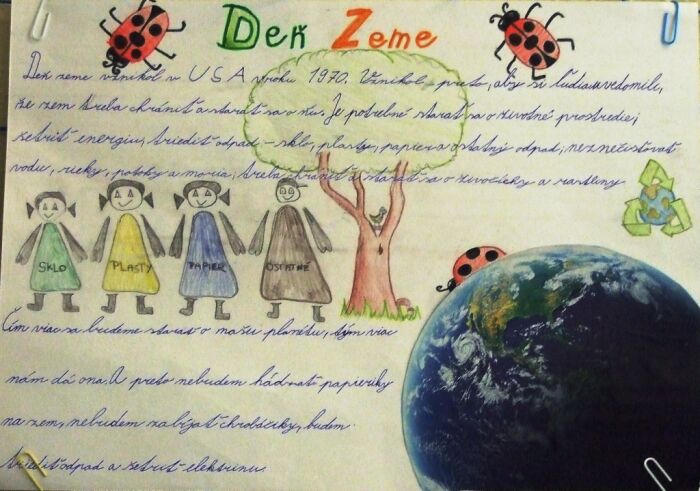 Deň Zeme
Deň zeme vznikol v USA v roku 1970. Vznikol preto, aby si ľudia uvedomili,
že zem treba chrániť a starať sa o ňu. Je potrebné starať sa o životné prostredie,
šetriť energiu, triediť odpad - sklo, plasty, papier a ostatný odpad, neznečisťovať
vodu, rieky, potoky a moria, treba chrániť a starať sa o živočíchy a rastliny
SKLO PLASTY PAPIER OSTATNÉ
Čím viac sa budeme starať o našu planétu, tým viac
nám dá ona. A preto nebudem hádzať papieriky
na zem, nebudem zabíjať chrobáčiky, budem
triediť odpad a šetriť elektrinu.